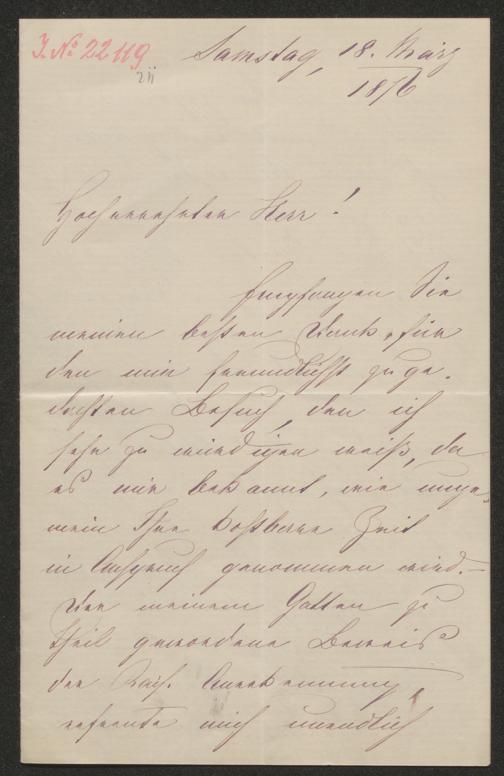 I. No 22119
Samstag, 18. März
1876
Hochverehrter Herr!
Empfangen Sie
meinen besten Dank, für
den mir freundlichst zuge-
dachten Besuch, den ich
sehr zu würdigen weiß, da
es mir bekannt, wie unge-
mein Ihre kostbare Zeit
in Anspruch genommen wird. –
Der meinem Gatten zu
Theil gewordene Beweis
der Kais. Anerkennung,
erfreute mich unendlich